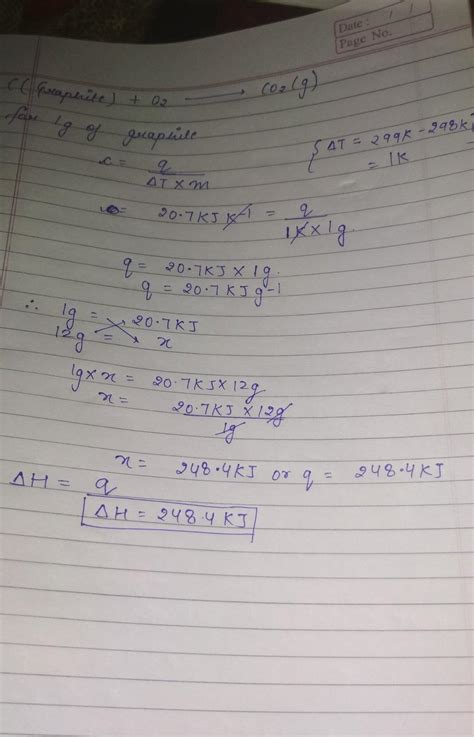 Date: / /
Page No.
C(Graphite) + O2 ⟶ CO2(g)
for 1g of graphite
c = q / ΔT × m
{ ΔT = 299K - 298K
= 1K
= 20.7KJ K-1 = q / 1K × 1g
q = 20.7KJ × 1g
q = 20.7KJ g-1
∴ 1g = 20.7KJ
12g = x
1g × x = 20.7KJ × 12g
x = 20.7KJ × 12g / 1g
x = 248.4KJ or q = 248.4KJ
ΔH = q
ΔH = 248.4 KJ